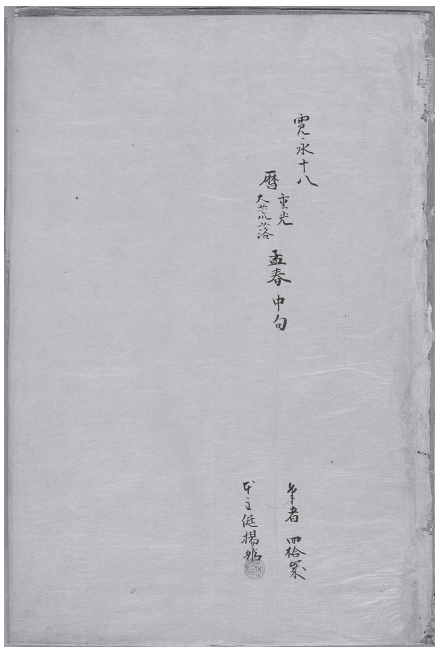 寛永十八
暦 重光
大荒落 孟春中旬
筆者 四拾歳
本主